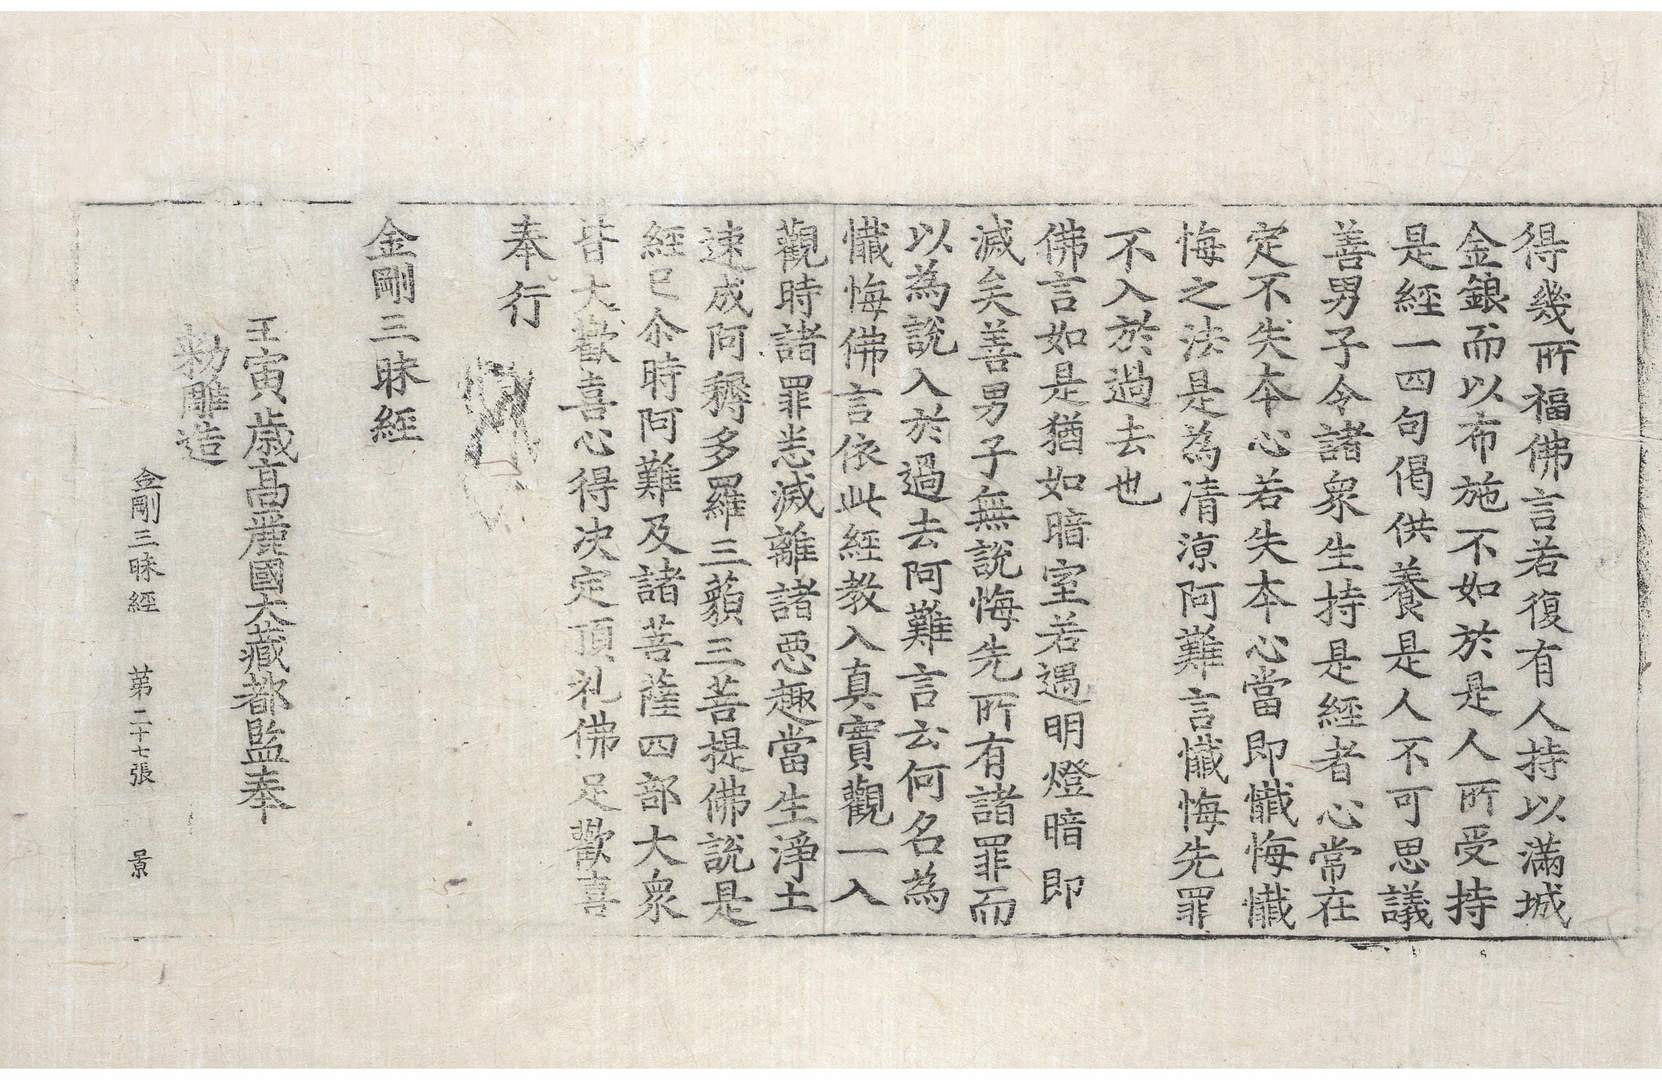 得幾所福佛言若復有人持以滿城
金銀而以布施不如於是人所受持
是經一四句偈供養是人不可思議
善男子令諸衆生持是經者心常在
定不失本心若失本心當即懺悔懺
悔之法是為凊涼阿難言懺悔先罪
不入於過去也
佛言如是猶如暗室若遇明燈暗即
滅矣善男子無說悔先所有諸罪而
以為說入於過去阿難言云何名為
懺悔佛言依此經教入真實觀一入
觀時諸罪悉滅離諸惡趣當生淨土
速成阿耨多羅三藐三菩提佛說是
經已尒時阿難及諸菩薩四部大衆
皆大歡喜心得決定頂礼佛足歡喜
奉行
金剛三昧經
壬寅歲高麗國大藏都監奉
勑雕造
金剛三昧經 第二十七張 景